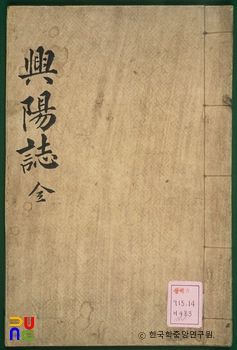 興陽誌 全
915.14
ⓒ 한국학중앙연구원